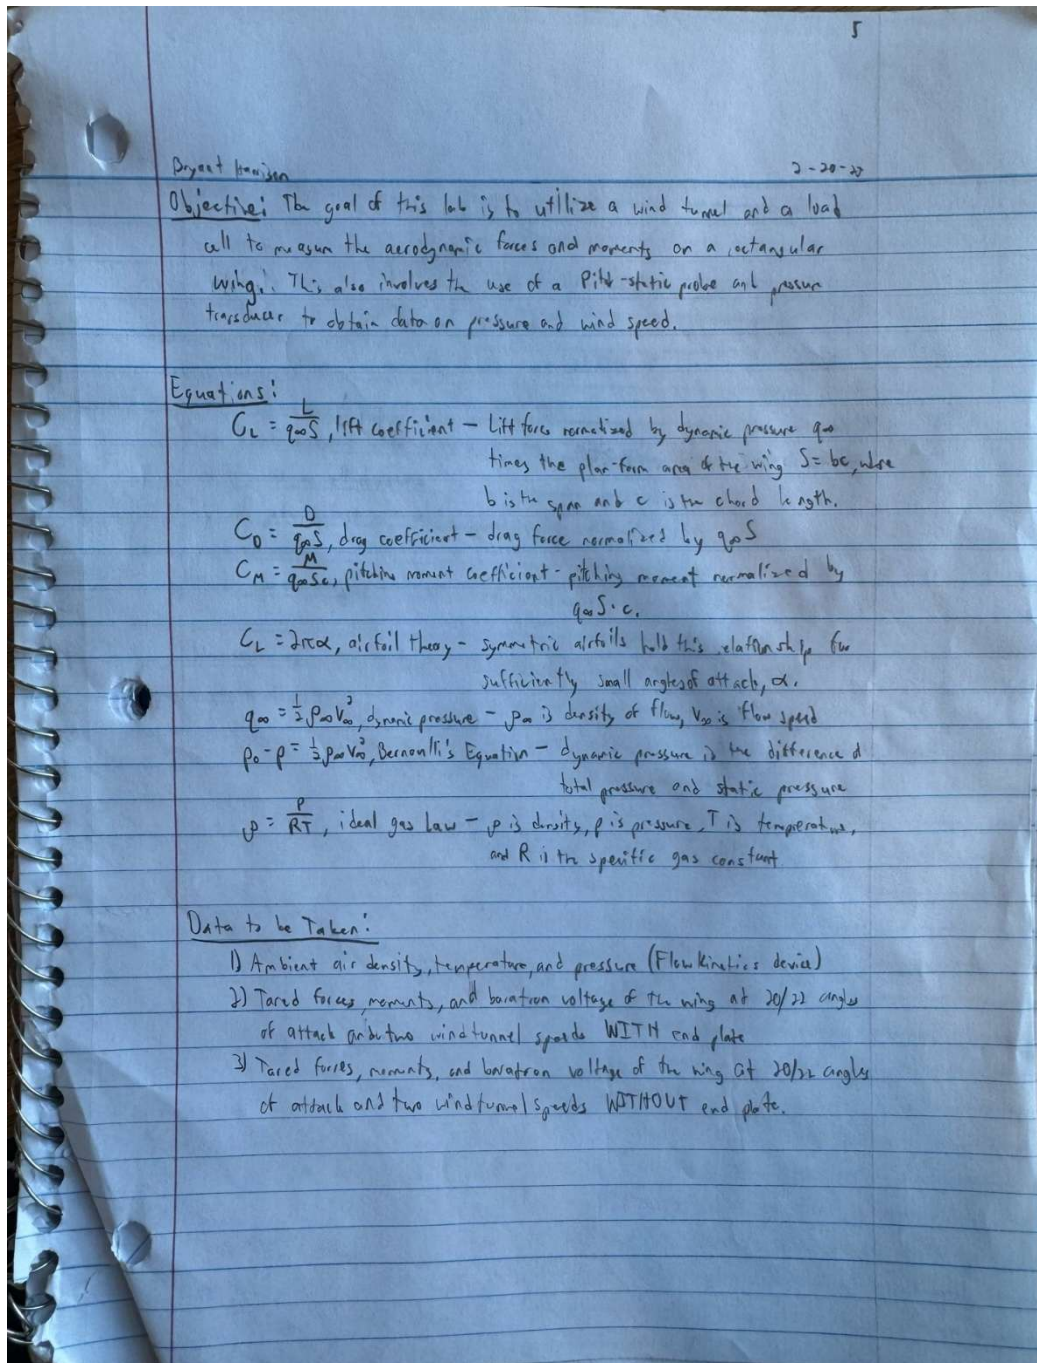 5
Bryant Harrison 2-20-23
Objective: The goal of this lab is to utilize a wind tunnel and a load
cell to measure the aerodynamic forces and moments on a rectangular
wing. This also involves the use of a Pitot-static probe and pressure
transducer to obtain data on pressure and wind speed.
Equations:
C_L = L/(q∞S), lift coefficient - Lift force normalized by dynamic pressure q∞
times the plan-form area of the wing S = bc, where
b is the span and c is the chord length.
C_D = D/(q∞S), drag coefficient - drag force normalized by q∞S
C_M = M/(q∞Sc), pitching moment coefficient - pitching moment normalized by
q∞S·c.
C_L = 2πα, airfoil theory - symmetric airfoils hold this relationship for
sufficiently small angles of attack, α.
q∞ = ½ρ∞V∞², dynamic pressure - ρ∞ is density of flow, V∞ is flow speed
p₀-p = ½ρ∞V∞², Bernoulli's Equation - dynamic pressure is the difference of
total pressure and static pressure
ρ = P/(RT), ideal gas law - ρ is density, p is pressure, T is temperature,
and R is the specific gas constant
Data to be Taken:
1) Ambient air density, temperature, and pressure (FlowKinetics device)
2) Tared forces, moments, and baratron voltage of the wing at 20/22 angles
of attack and two wind tunnel speeds WITH end plate
3) Tared forces, moments, and baratron voltage of the wing at 20/22 angles
of attack and two wind tunnel speeds WITHOUT end plate.